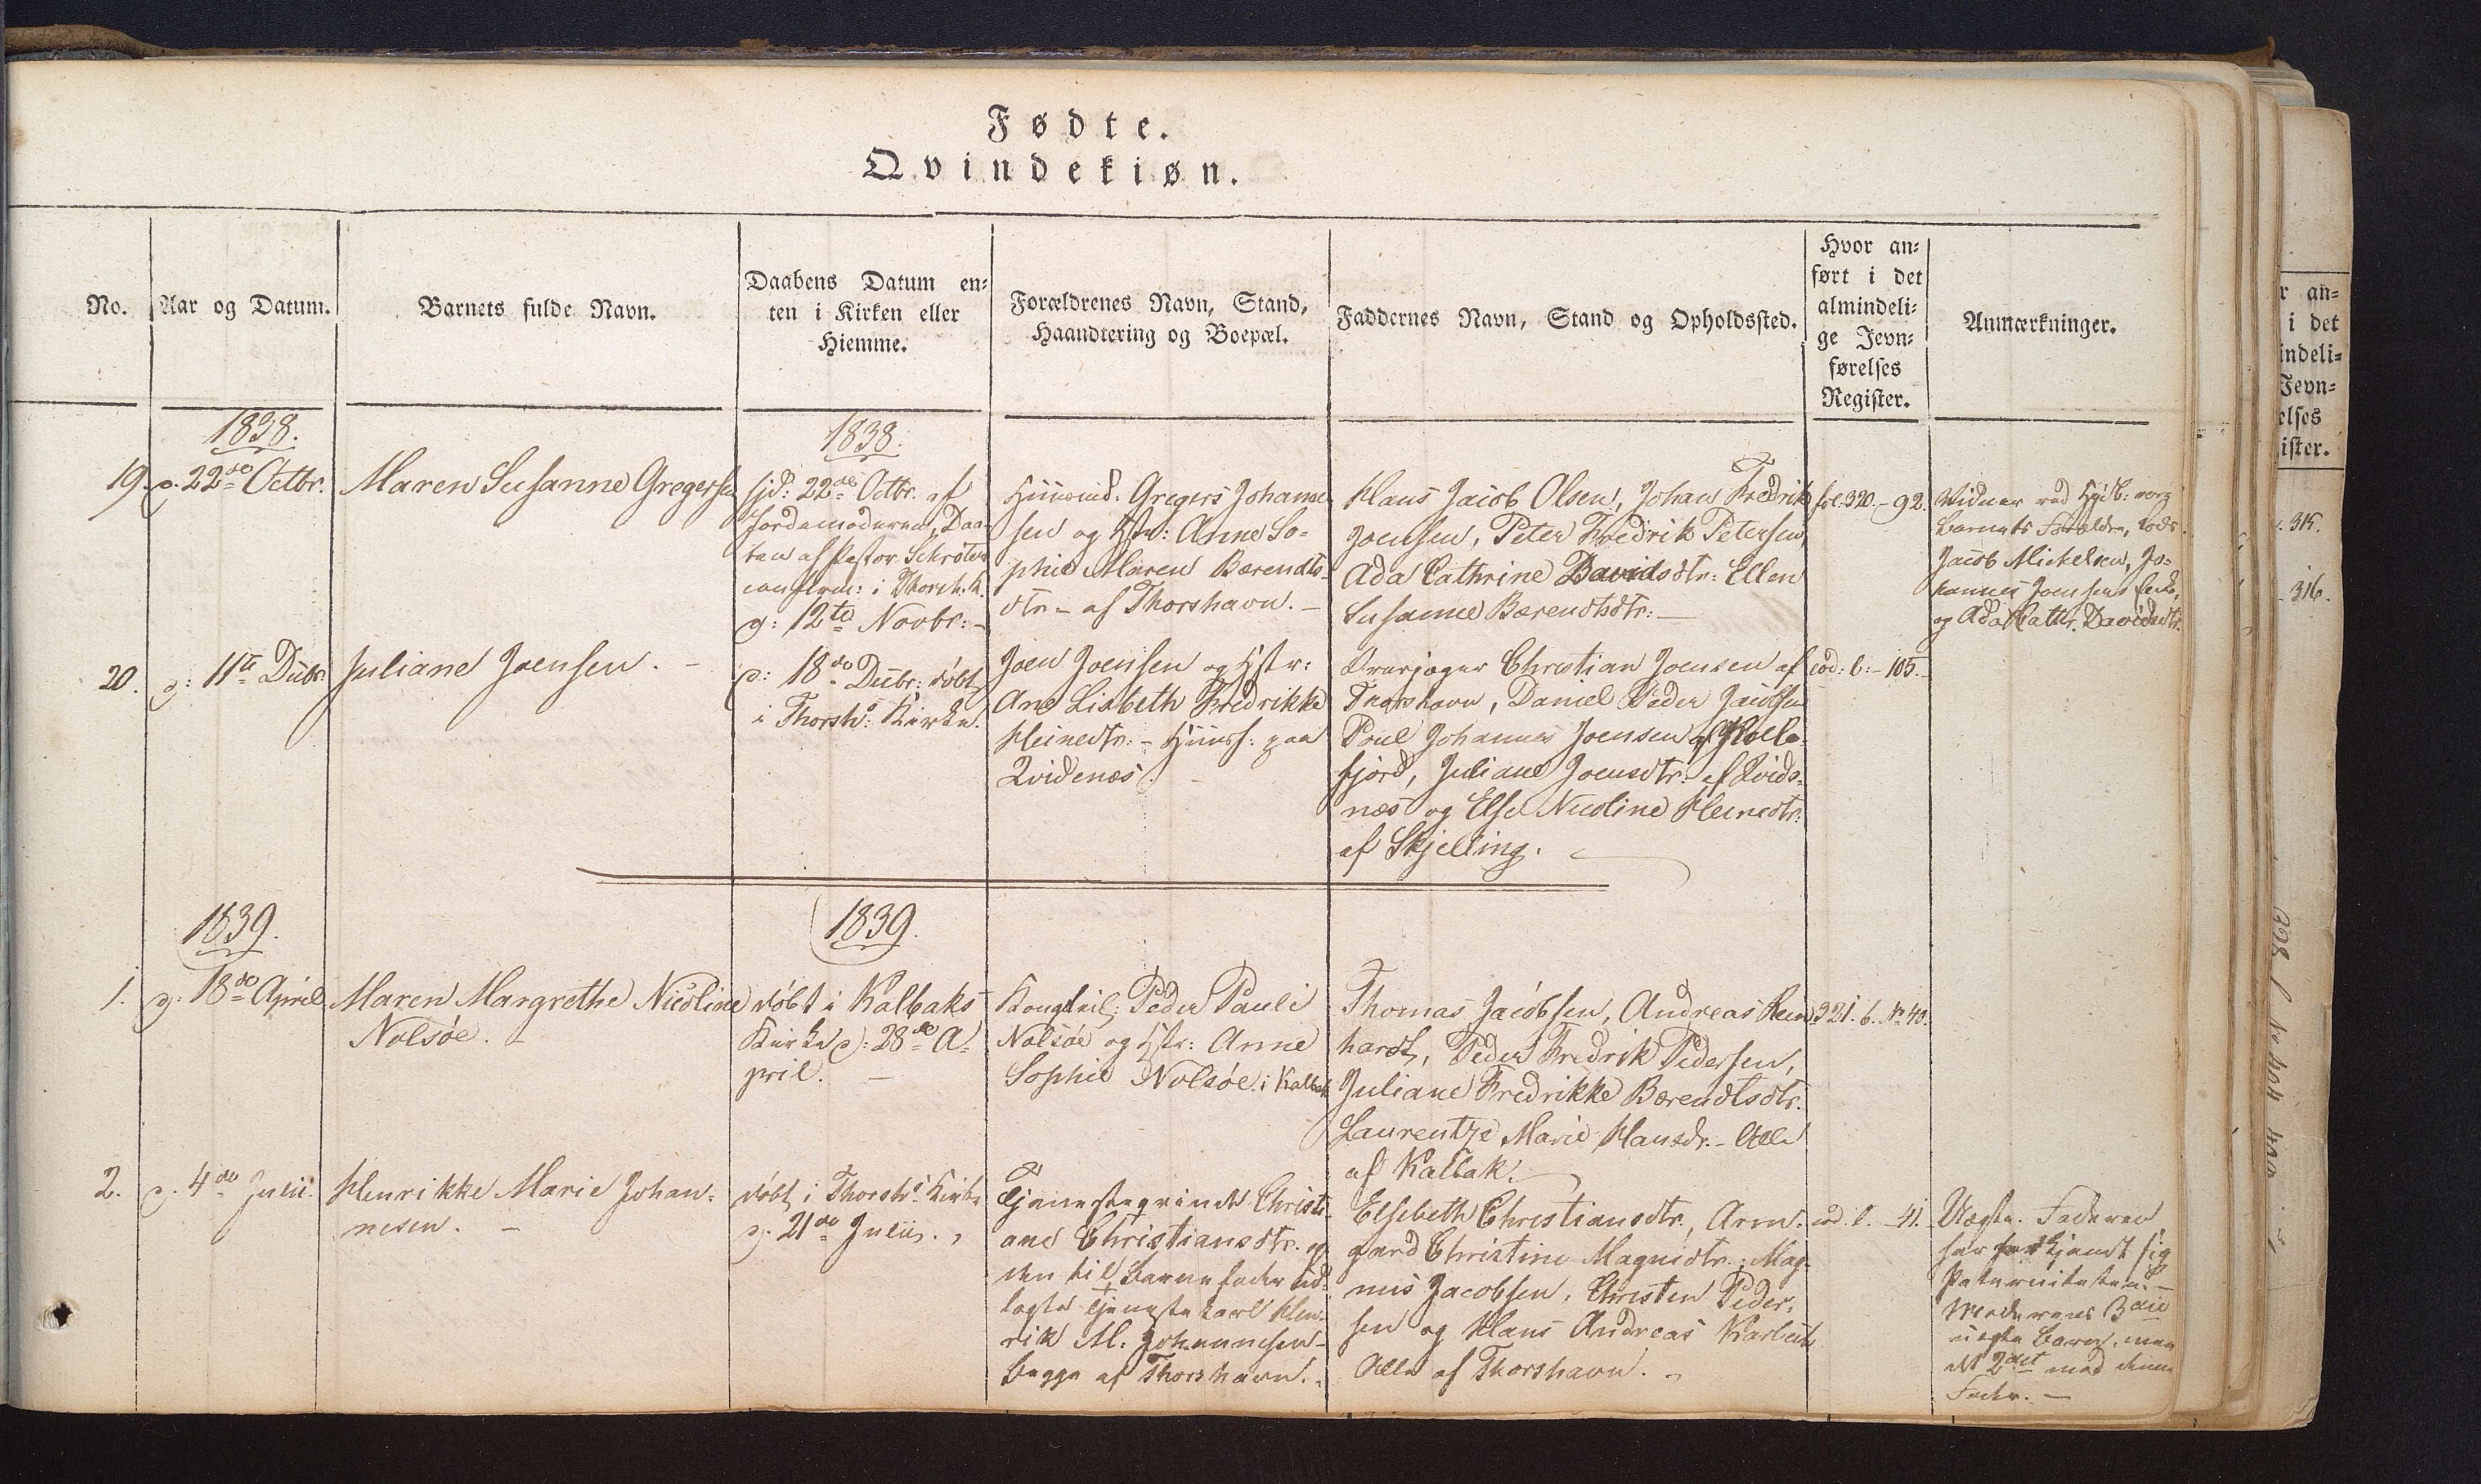 Fødte.
Qvindekiøn.
No.
Aar og Datum.
Barnets fulde Navn.
Daabens Datum en-
ten i Kirken eller
Hiemme.
Forældrenes Navn, Stand,
Haandtering og Boepæl.
Faddernes Navn, Stand og Opholdssted.
Hvor an-
ført i det
almindeli-
ge Jevn-
førelses
Register.
Anmærkninger.
1838.
19.
d. 22de Octbr.
Maren Susanne Gregersen
1838.
hjd: 22de Octbr. af
Jordemoderen, Daa-
ben af Pastor Schrøter
confirm: i Thorsh. K.
d: 12te Novbr: -
Huusmd: Gregers Johanne
sen og Hstr: Anne So-
phie Maren Barendts-
dtr - af Thorshavn. -
Hans Jacob Olsen, Johan Fredrik
Joensen, Peter Fredrik Petersen,
Ada Cathrine Davidsdtr: Ellen
Susanne Barendtsdtr: -
fol. 320. - 92.
Vidner ved Hjdb: vare
Barnets Forældre, Lods
Jacob Michelsen, Jo-
hannes Joensens
og Ada Cathr. Davidsdtr.
20.
d: 11te Dcbr.
Juliane Joensen. -
d: 18de Decbr: døbt
i Thorshs: Kirke.
Joen Joensen og Hstr:
Ane Lisbeth Fredrikke
Heinedtr: - Huusf: paa
Qvidenæs. -
Christian Joensen af
Thorshavn, Daniel Peder Jacobsen
Poul Johannes Joensen af Kolle-
fjord, Juliane Joensdtr: af Qvide-
næs og Else Nicoline Heinedtr:
af Skjelling.
eod: l: - 105. -
1839.
1.
d: 18de April
Maren Margrethe Nicoline
Nolsøe. -
1839.
døbt i Kalbaks
Kirke d: 28de A-
pril. -
Peder Pauli
Nolsøe og Hstr: Anne
Sophie Nolsøe i Kalbak
Thomas Jacobsen, Andreas Rein
hardt, Peder Fredrik Pedersen,
Juliane Fredrikke Barendtsdtr.
Laurentze Marie Hansdr. - Alle
af Kalbak.
321. b. No 40.
2.
d. 4de Julii.
Henrikke Marie Johan-
nesen. -
døbt i Thorshs Kirke
d. 21de Julii.
Tjenesteqvinde Christi-
ane Christiansdtr. og
den til Barnefader ud-
lagte Tjenestekarl Hen-
rik M. Johannesen -
begge af Thorshavn.
Elsebeth Christiansdtr., Arm-
gard Christine Magnidtr; Mag-
nus Jacobsen, Christen Peder-
sen og Hans Andreas
Alle af Thorshavn.
eod. l. - 41.
Uægte. Faderen
har kjendt sig
Paterniteten. -
Moderens 3die
uægte Barn, men
det 2det med denne
Fader. -
r an-
i det
indeli-
Jevn-
elses
ister.
315.
316.